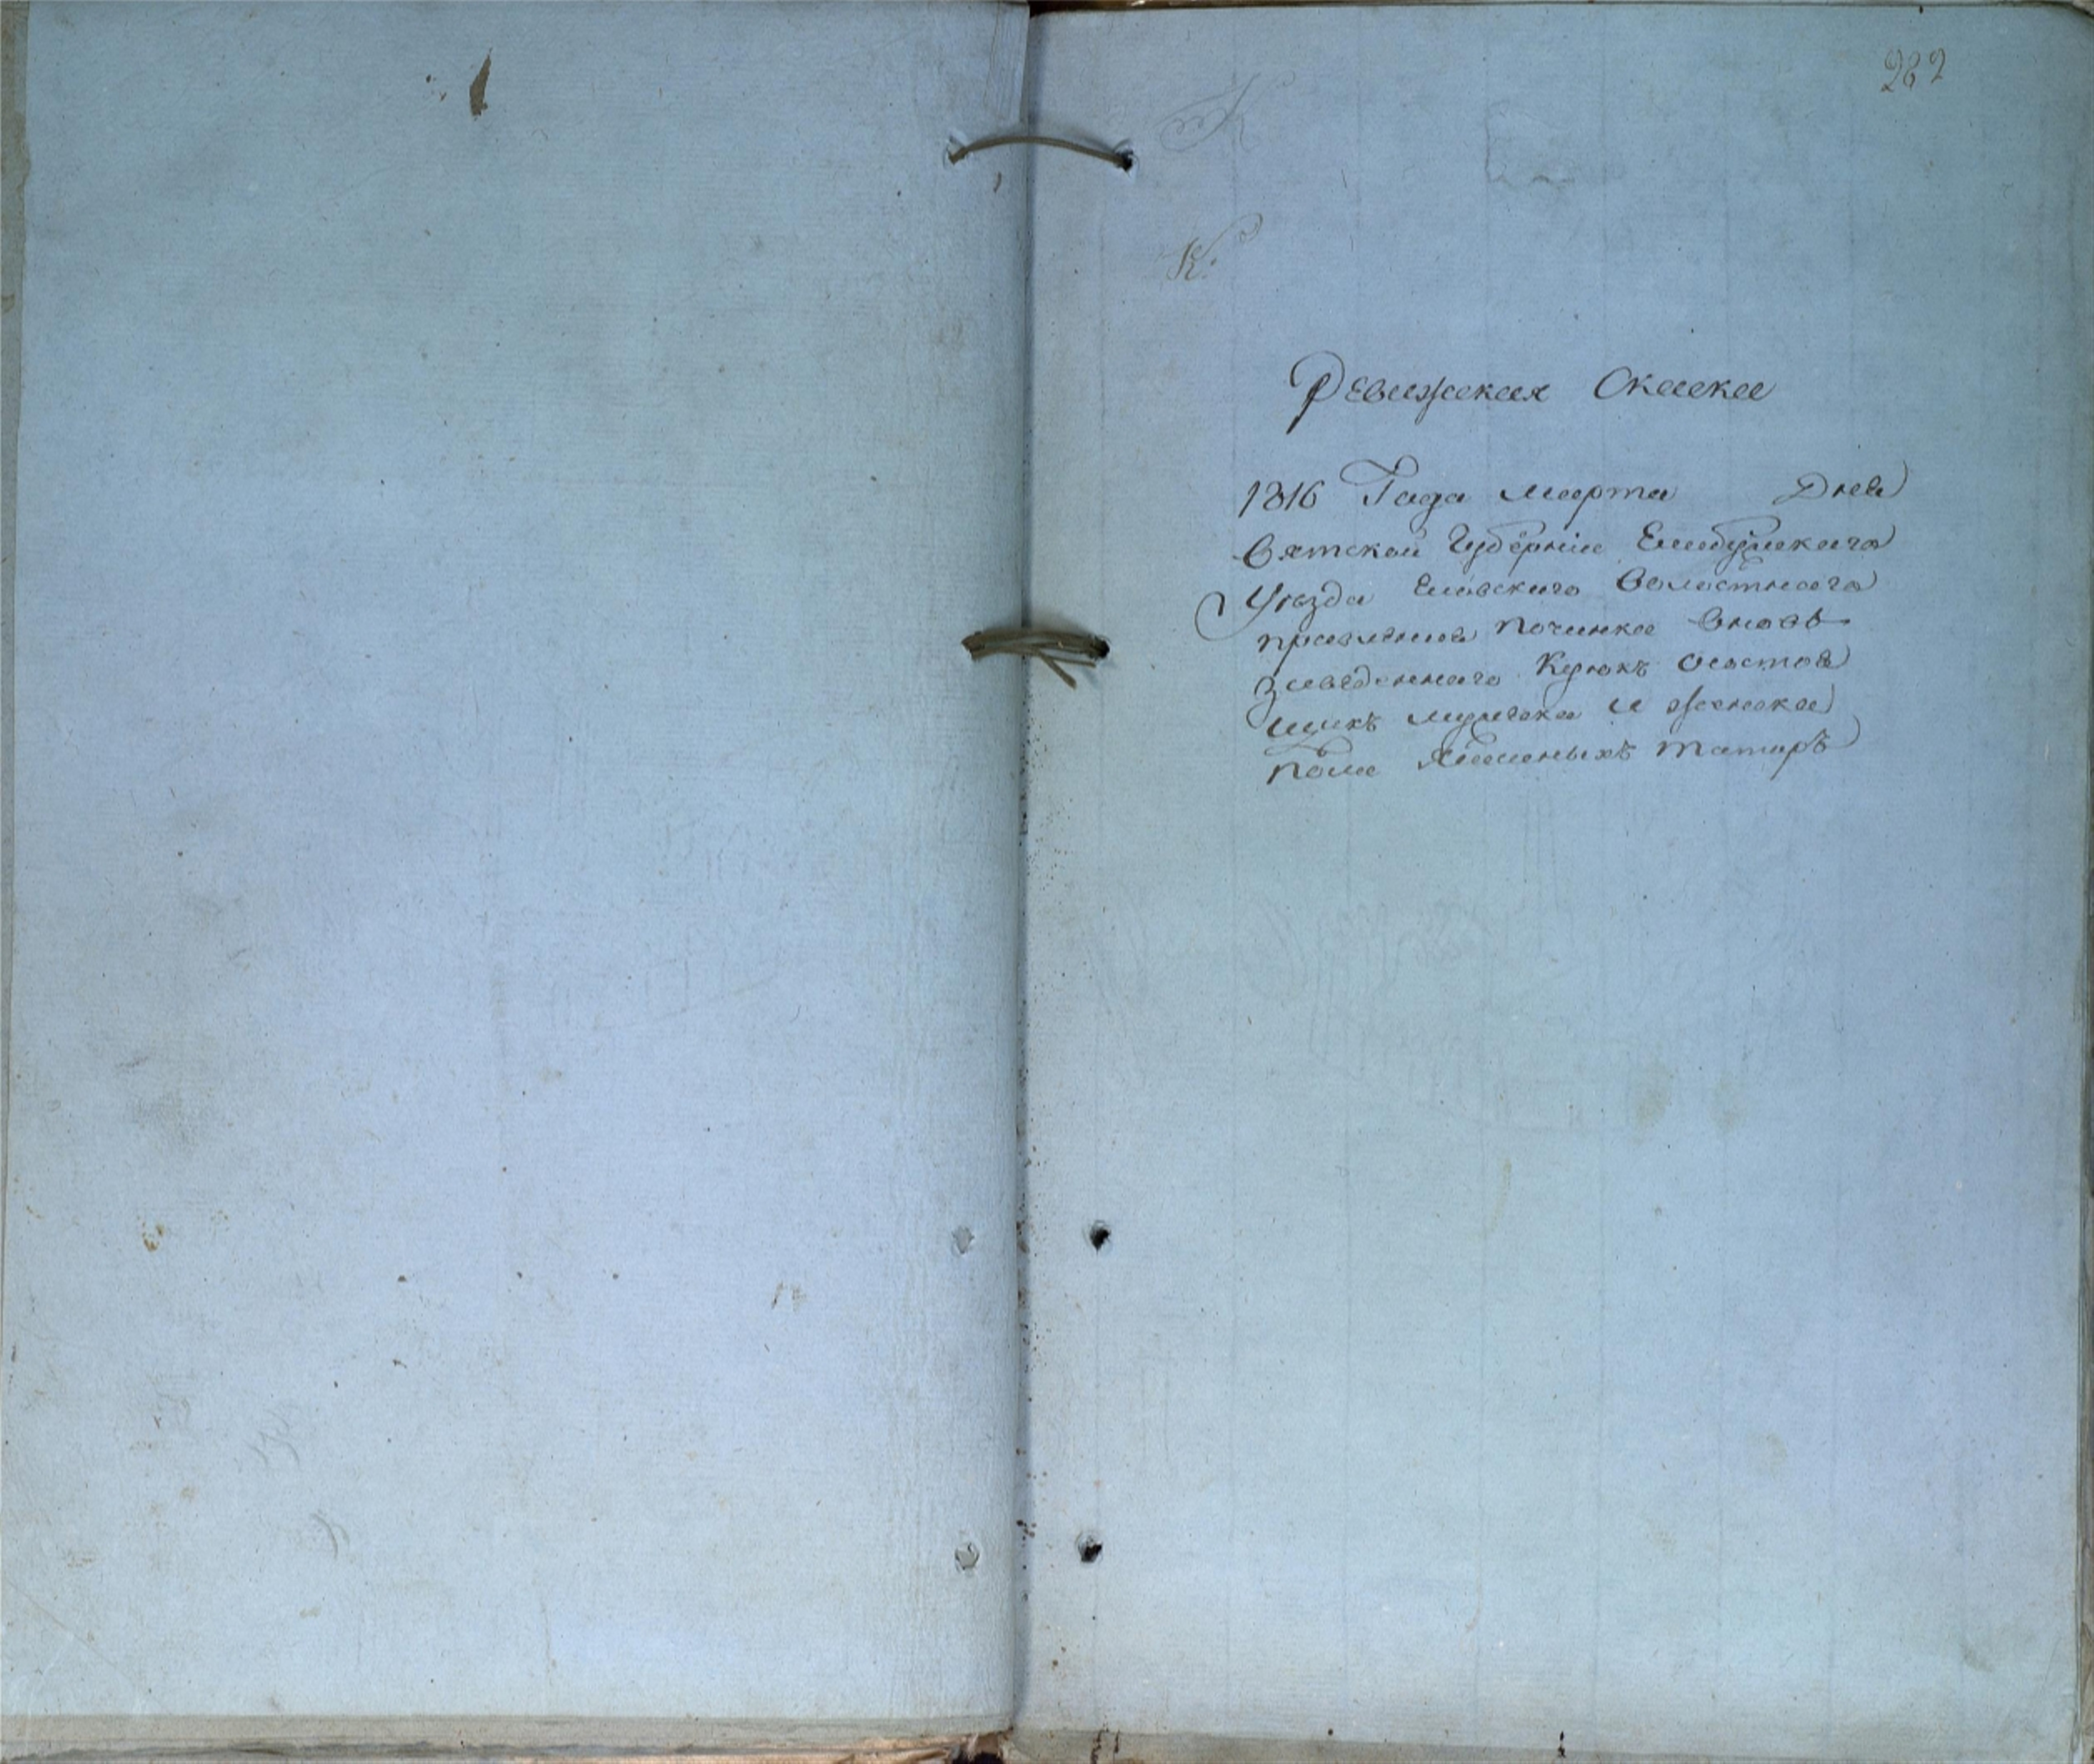 282
К.
Ревижская Скаска
1816 Года марта Дня
Вятской Губерніи Елабужскаго
Уѣзда Еловскаго Волостнаго
правления починка вновь
заведеннаго Курюкъ о состоя
щихъ мужска и женска
пола ясашныхъ татаръ